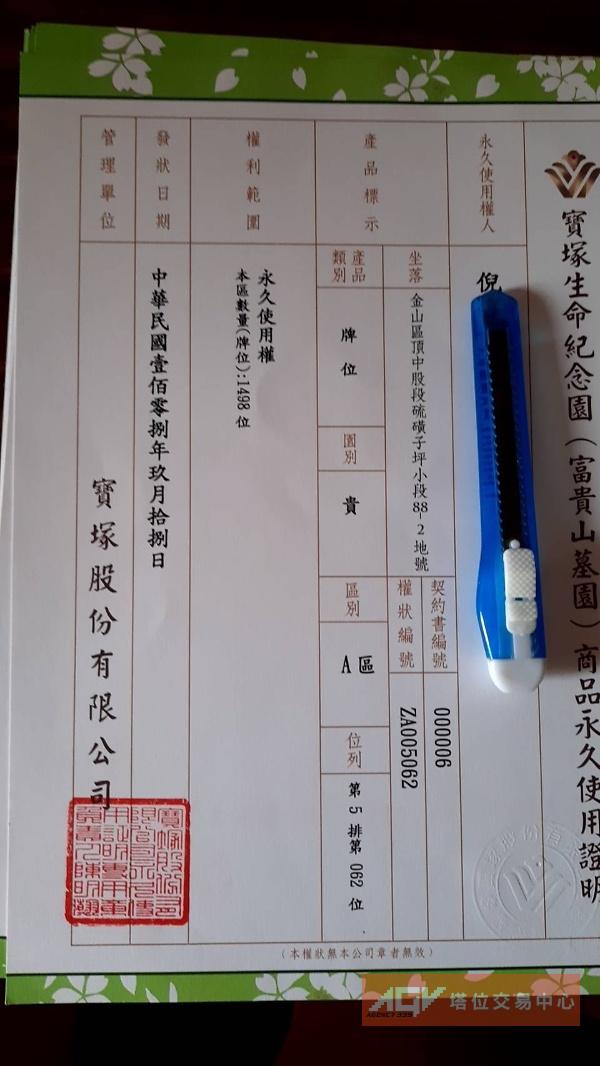 寶塚生命紀念園（富貴山墓園）商品永久使用證明
永久使用權人
倪
契約書編號
000006
權狀編號
ZA005062
產品標示
坐落
金山區頂中股段硫磺子坪小段88-2地號
產品類別
牌位
園別
貴
區別
A區
位列
第5排第062位
權利範圍
永久使用權
本區數量(牌位):1498位
發狀日期
中華民國壹佰零捌年玖月拾捌日
管理單位
寶塚股份有限公司
（本權狀無本公司章者無效）
AGV 塔位交易中心
AGENCY 339